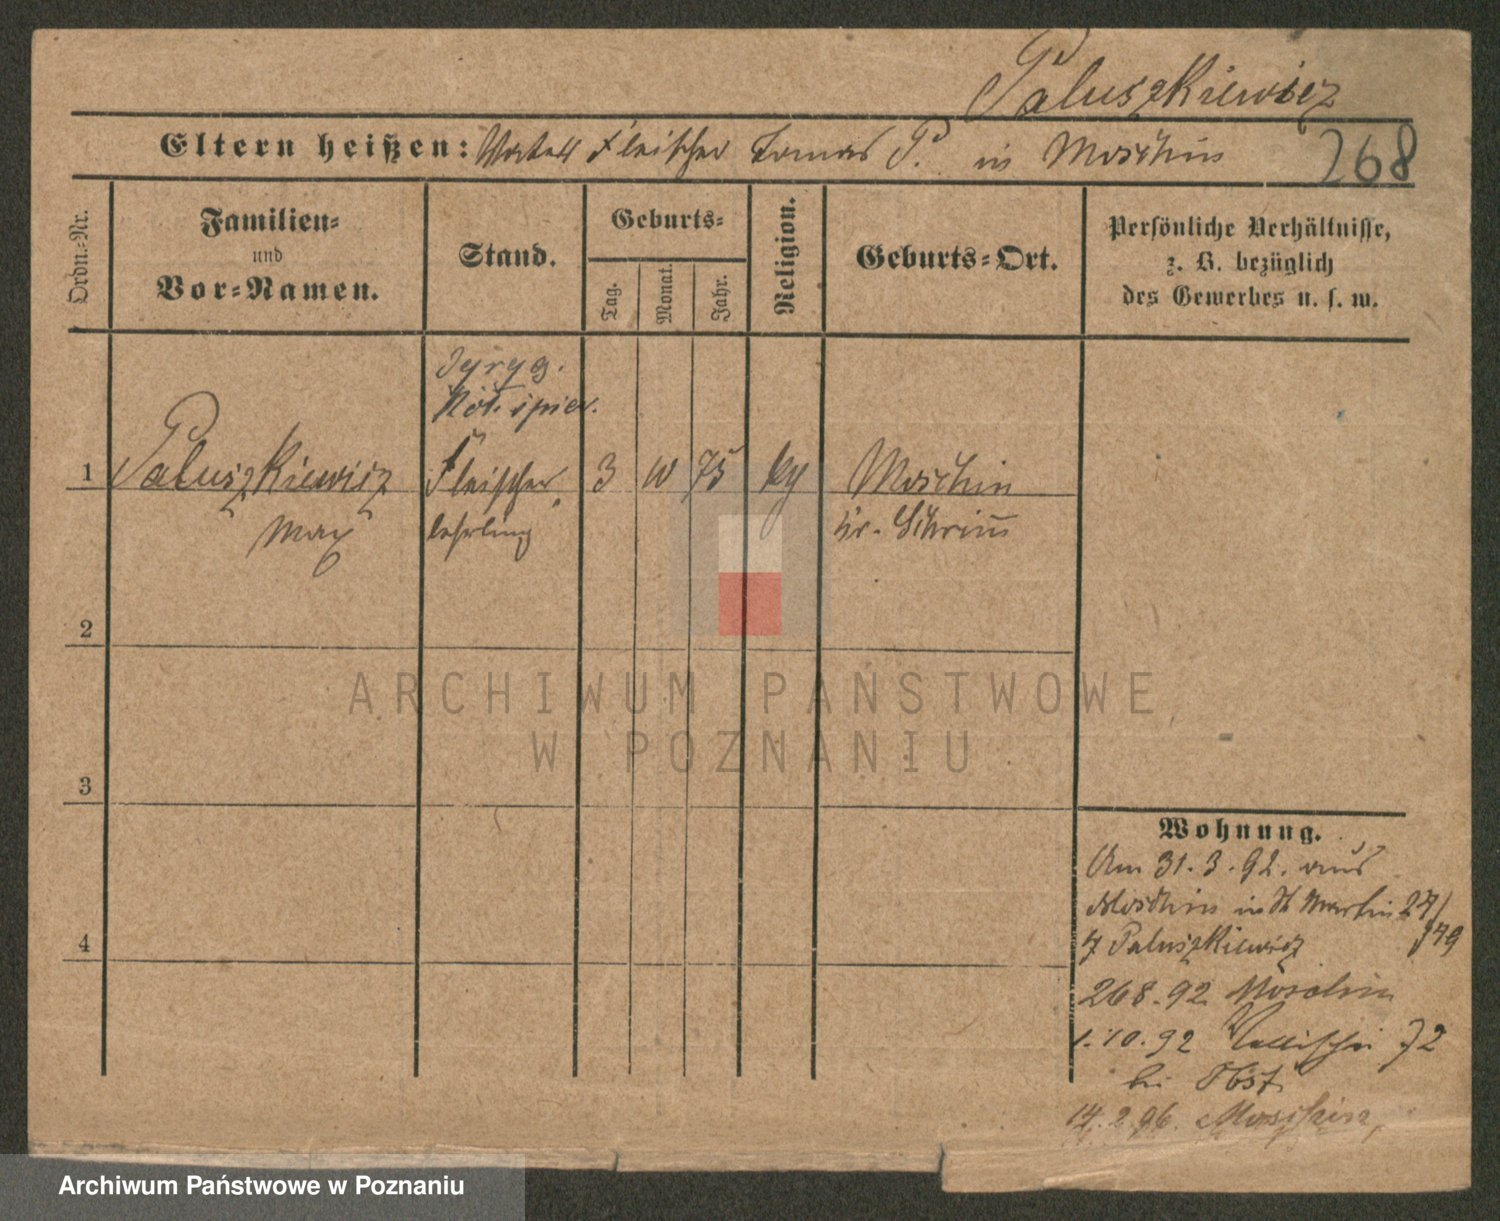 Paluszkiewicz
Eltern heißen: Fleischer Tomas P. in Moschin
268
Ordn.-Nr.
Familien-
und
Vor-Namen.
Stand.
Geburts-
Tag.
Monat.
Jahr.
Religion.
Geburts-Ort.
Persönliche Verhältnisse,
z. B. bezüglich
des Gewerbes u. s. w.
1 Paluszkiewicz Fleischer 3 75 Moschin
Max lehrling Kr. Schrim
2
3
4
Wohnung.
Am 31.3.92. aus
Moschin in St Martin 27/
Paluszkiewicz
26 8.92 Moschin
1.10.92 Wallischei 72
bei Obst
14.2.96. Moschin,
ARCHIWUM PAŃSTWOWE
W POZNANIU
Archiwum Państwowe w Poznaniu